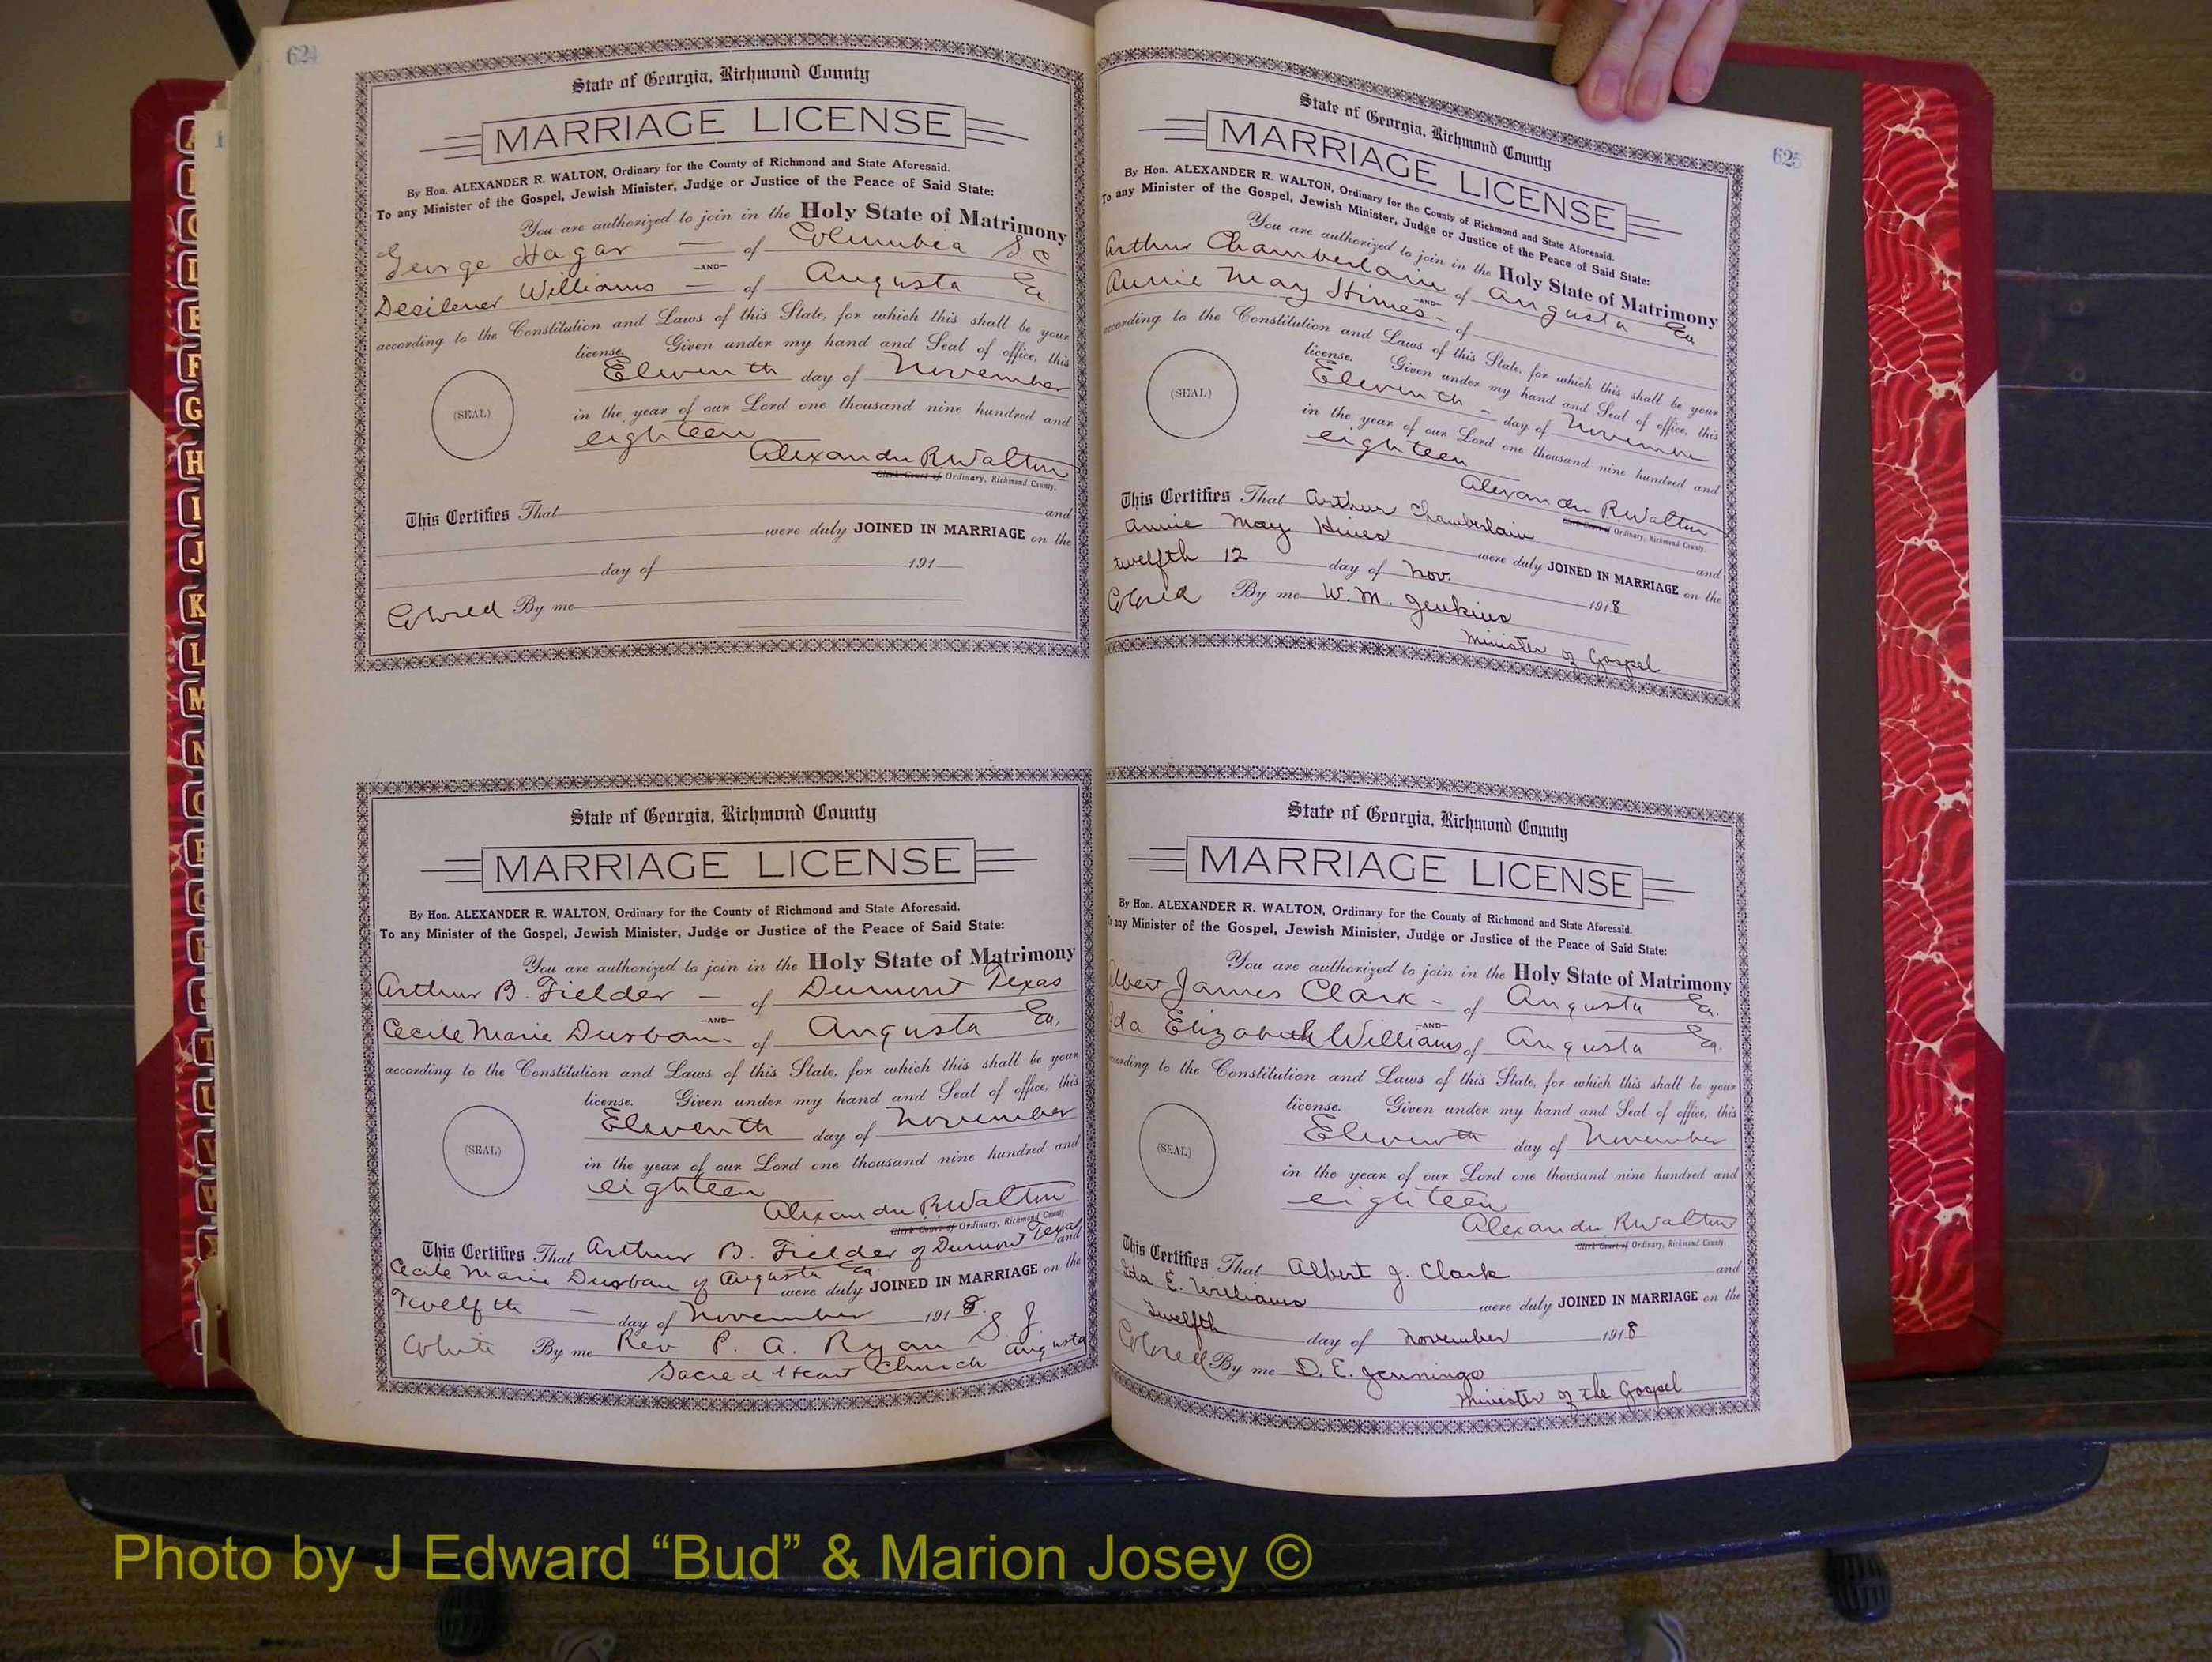 624
State of Georgia, Richmond County
MARRIAGE LICENSE
By Hon. ALEXANDER R. WALTON, Ordinary for the County of Richmond and State Aforesaid.
To any Minister of the Gospel, Jewish Minister, Judge or Justice of the Peace of Said State:
You are authorized to join in the Holy State of Matrimony
George Hagar — of Columbia S.C
—AND—
Williams — of Augusta Ga
according to the Constitution and Laws of this State, for which this shall be your
license. Given under my hand and Seal of office, this
Eleventh day of November
(SEAL)
in the year of our Lord one thousand nine hundred and
eighteen
Alexander R Walton
Clerk Court of Ordinary, Richmond County.
This Certifies That and
were duly JOINED IN MARRIAGE on the
day of 191
Colored By me
State of Georgia, Richmond County
MARRIAGE LICENSE
By Hon. ALEXANDER R. WALTON, Ordinary for the County of Richmond and State Aforesaid.
To any Minister of the Gospel, Jewish Minister, Judge or Justice of the Peace of Said State:
You are authorized to join in the Holy State of Matrimony
Arthur B. Fielder — of Dumont Texas
—AND—
Cecile Marie Durban - of Augusta Ga.
according to the Constitution and Laws of this State, for which this shall be your
license. Given under my hand and Seal of office, this
Eleventh day of November
(SEAL)
in the year of our Lord one thousand nine hundred and
eighteen
Alexander R Walton
Clerk Court of Ordinary, Richmond County.
This Certifies That Arthur B. Fielder of Dumont Texas and
Cecile Marie Durban of Augusta Ga were duly JOINED IN MARRIAGE on the
Twelfth — day of November 1918.
White By me Rev P. A. Ryan S. J.
Sacred Heart Church Augusta
625
State of Georgia, Richmond County
MARRIAGE LICENSE
By Hon. ALEXANDER R. WALTON, Ordinary for the County of Richmond and State Aforesaid.
To any Minister of the Gospel, Jewish Minister, Judge or Justice of the Peace of Said State:
You are authorized to join in the Holy State of Matrimony
Arthur Chamberlain of Augusta Ga
—AND—
Annie May Hines - of
according to the Constitution and Laws of this State, for which this shall be your
license. Given under my hand and Seal of office, this
Eleventh - day of November
(SEAL)
in the year of our Lord one thousand nine hundred and
eighteen
Alexander R Walton
Clerk Court of Ordinary, Richmond County.
This Certifies That Arthur Chamberlain and
Annie May Hines were duly JOINED IN MARRIAGE on the
twelfth 12 day of Nov. 1918
Colored By me W. M. Jenkins
Minister of Gospel
State of Georgia, Richmond County
MARRIAGE LICENSE
By Hon. ALEXANDER R. WALTON, Ordinary for the County of Richmond and State Aforesaid.
To any Minister of the Gospel, Jewish Minister, Judge or Justice of the Peace of Said State:
You are authorized to join in the Holy State of Matrimony
Albert James Clark - of Augusta Ga.
—AND—
Ida Elizabeth Williams of Augusta Ga.
according to the Constitution and Laws of this State, for which this shall be your
license. Given under my hand and Seal of office, this
Eleventh day of November
(SEAL)
in the year of our Lord one thousand nine hundred and
eighteen
Alexander R Walton
Clerk Court of Ordinary, Richmond County.
This Certifies That Albert J. Clark and
Ida E. Williams were duly JOINED IN MARRIAGE on the
twelfth day of November 1918
Colored By me D. E. Jennings
Minister of the Gospel
Photo by J Edward “Bud” & Marion Josey ©